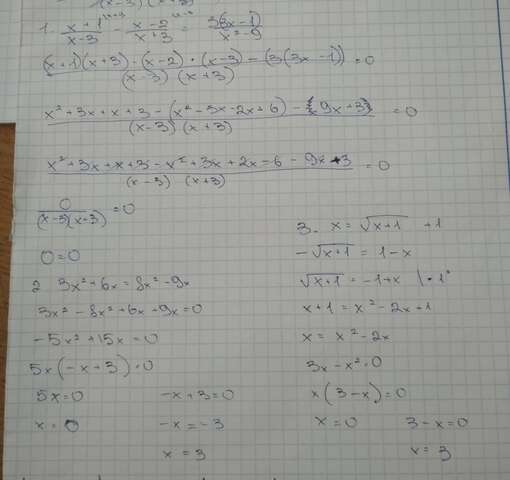 (x-3) (x+3)
1. \frac{x+1}{x-3} - \frac{x-2}{x+3} = \frac{3(3x-1)}{x^2-9}
\frac{(x+1)(x+3) - (x-2) \cdot (x-3) - (3(3x-1))}{(x-3) (x+3)} = 0
\frac{x^2+3x+x+3-(x^2-3x-2x+6)-(9x+3)}{(x-3) (x+3)} = 0
\frac{x^2+3x+x+3-x^2+3x+2x-6-9x+3}{(x-3) (x+3)} = 0
\frac{0}{(x-3)(x+3)} = 0
0=0
2 3x^2+6x=8x^2-9x
3x^2-8x^2+6x+9x=0
-5x^2+15x=0
5x(-x+3)=0
5x=0 -x+3=0
x=0 -x=-3
x=3
3. x=\sqrt{x+1} +1
-\sqrt{x+1} = 1-x
\sqrt{x+1} = -1+x
x+1=x^2-2x+1
x=x^2-2x
3x-x^2=0
x(3-x)=0
x=0 3-x=0
x=3